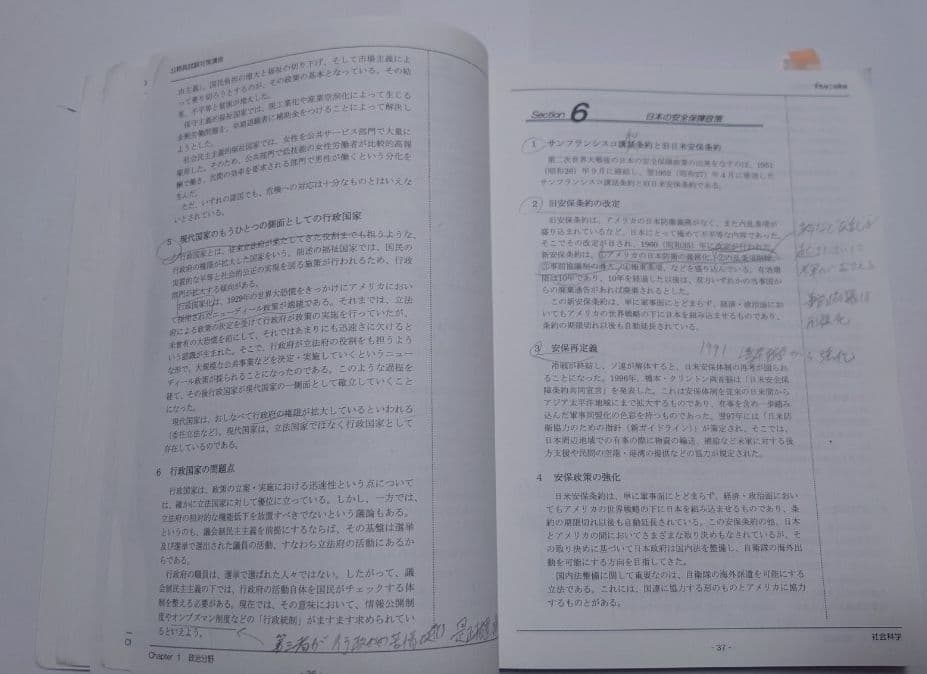 公務員試験対策講座
由主義)、国民負担の増大と福祉の切り下げ、そして市場主義によ
って乗り切ろうとするのが、その政策の基本となっている。その結
果、不平等と貧困が増大した。
保守主義的福祉国家では、脱工業化や産業空洞化によって生じる
余剰労働問題を、早期退職者に補助金をつけることによって解決し
ようとした。
社会民主主義的福祉国家では、女性を公共サービス部門で大量に
雇用した。そのため、公共部門で低技能の女性労働者が比較的高報
酬で働き、民間の効率を要求される部門で男性が働くという分化を
生んだ。
ただ、いずれの諸国でも、危機への対応は十分なものとはいえな
いとされている。
5 現代国家のもうひとつの側面としての行政国家
行政国家とは、従来立法府が果たしてきた役割までも担うような、
行政府の権限が拡大した国家をいう。前述の福祉国家では、国民の
実質的な平等と社会的公正の実現を図る施策が行われるため、行政
部門が拡大する傾向がある。
行政国家化は、1929年の世界大恐慌をきっかけにアメリカにおい
て採用されたニューディール政策が端緒である。それまでは、立法
府による政策の決定を受けて行政府が政策の実施を行っていたが、
未曾有の大恐慌を前にして、それではあまりにも迅速さに欠けると
いう認識が生まれた。そこで、行政府が立法府の役割をも担うよう
な形で、大規模な公共事業などを決定・実施していくというニュー
ディール政策が採られることになったのである。このような過程を
経て、その後行政国家が現代国家の一側面として確立していくこと
になった。
現代国家は、おしなべて行政府の権限が拡大しているといわれる
(委任立法など)。現代国家は、立法国家でほなく行政国家として
存在しているのである。
6 行政国家の問題点
行政国家は、政策の立案・実施における迅速性という点について
は、確かに立法国家に対して優位に立っている。しかし、一方では、
立法府の相対的な機能低下を放置すべきでないという議論もある。
というのも、議会制民主主義を前提にするならば、その基盤は選挙
及び選挙で選出された議員の活動、すなわち立法府の活動にあるか
らである。
行政府の職員は、選挙で選ばれた人々ではない。したがって、議
会制民主主義の下では、行政府の活動自体を国民がチェックする体
制を整える必要がある。現在では、その意味において、情報公開制
度やオンブズマン制度などの「行政統制」がますます求められてい
るといえよう。
第三者が 行政
Chapter 1 政治分野
Section 6 日本の安全保障政策
1 サンフランシスコ講話条約と旧日米安保条約
和
第二次世界大戦後の日本の安全保障政策の出発をなすのは、1951
(昭和26)年9月に締結し、翌1952(昭和27)年4月に発効した
サンフランシスコ講話条約と旧日米安保条約である。
2 旧安保条約の改定
旧安保条約は、アメリカの日本防衛義務がなく、また内乱条項が
盛り込まれているなど、日本にとって極めて不平等な内容であった。
そこでその改定が目され、1960(昭和35)年に改定が行われた。
新安保条約は、①アメリカの日本防衛の義務化、②内乱条項削除、
③事前協議制の導入、④極東条項、などを盛り込んでいる。有効期
限は10年であり、10年を経過した以後は、双方いずれかの当事国か
らの廃棄通告があれば廃棄されるとした。
この新安保条約は、単に軍事面にとどまらず、経済・政治面にお
いてもアメリカの世界戦略の下に日本を組み込ませるものであり、
条約の期限切れ以後も自動延長されている。
形骸化
3 安保再定義
1991 から 強化
冷戦が終結し、ソ連が解体すると、日米安保体制の再考が図られ
ることになった。1996年、橋本・クリントン両首脳は「日米安全保
障条約共同宣言」を発表した。これは安保体制を従来の日米間から
アジア太平洋地域にまで拡大するものであり、有事を含め一歩踏み
込んだ軍事同盟化の色彩を持つものであった。翌97年には「日米防
衛協力のための指針(新ガイドライン)」が策定され、そこでは、
日本周辺地域での有事の際に物資の輸送、補給など米軍に対する後
方支援や民間の空港・港湾の提供などの協力が規定された。
4 安保政策の強化
日米安保条約は、単に軍事面にとどまらず、経済・政治面におい
てもアメリカの世界戦略の下に日本を組み込ませるものであり、条
約の期限切れ以後も自動延長されている。この安保条約の他、日本
とアメリカの間においてさまざまな取り決めもなされているが、そ
の取り決めに基づいて日本政府は国内法を整備し、自衛隊の海外出
動を可能にする方向を目指してきた。
国内法整備に関して重要なのは、自衛隊の海外派遣を可能にする
立法である。これには、国連に協力する形のものとアメリカに協力
するものとがある。
社会科学
- 37 -